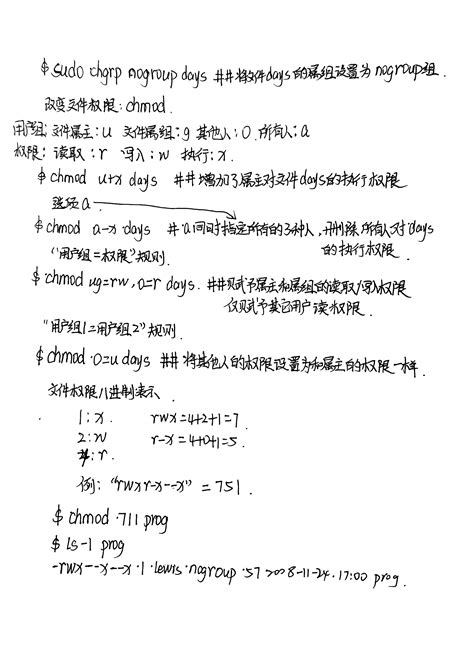 $ sudo chgrp nogroup days ##将文件days的属组设置为nogroup组.
改变文件权限:chmod.
用户组:文件属主:u 文件属组:g 其他人:O 所有人:a
权限:读取:r 写入:w 执行:x.
$ chmod u+x days ##增加了属主对文件days的执行权限
选项a
$ chmod a-x days #a同时指定所有的3种人,删除所有人对days
的执行权限.
“用户组=权限”规则.
$ chmod ug=rw,o=r days. ##赋予属主和属组的读取/写入权限
仅赋予其它用户读权限.
“用户组1=用户组2”规则.
$ chmod o=u days ##将其他人的权限设置为和属主的权限一样.
文件权限八进制表示
1:x. rwx=4+2+1=7
2:w r-x=4+0+1=5.
4:r.
例:“rwxr-x--x”=751.
$ chmod 711 prog
$ ls -l prog
-rwx--x--x 1 lewis nogroup 57 2008-11-24 17:00 prog.